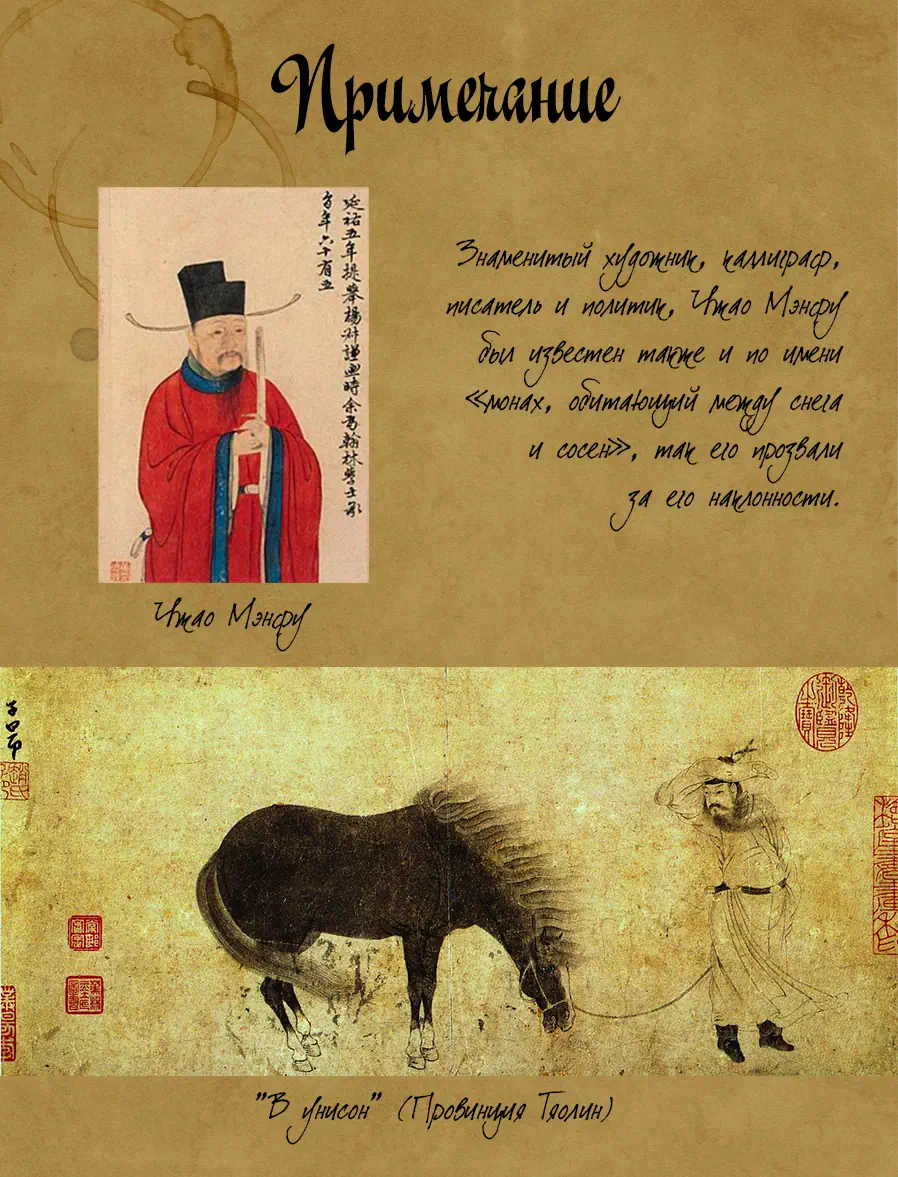 Примечание
延祐五年提舉楊叔謹畫時余爲翰林學士承
旨年六十有五
Знаменитый художник, каллиграф,
писатель и политик, Чжао Мэнфу
был известен также и по имени
«монах, обитающий между снега
и сосен», так его прозвали
за его наклонности.
Чжао Мэнфу
子昂
"В унисон" (Провинция Тяолин)